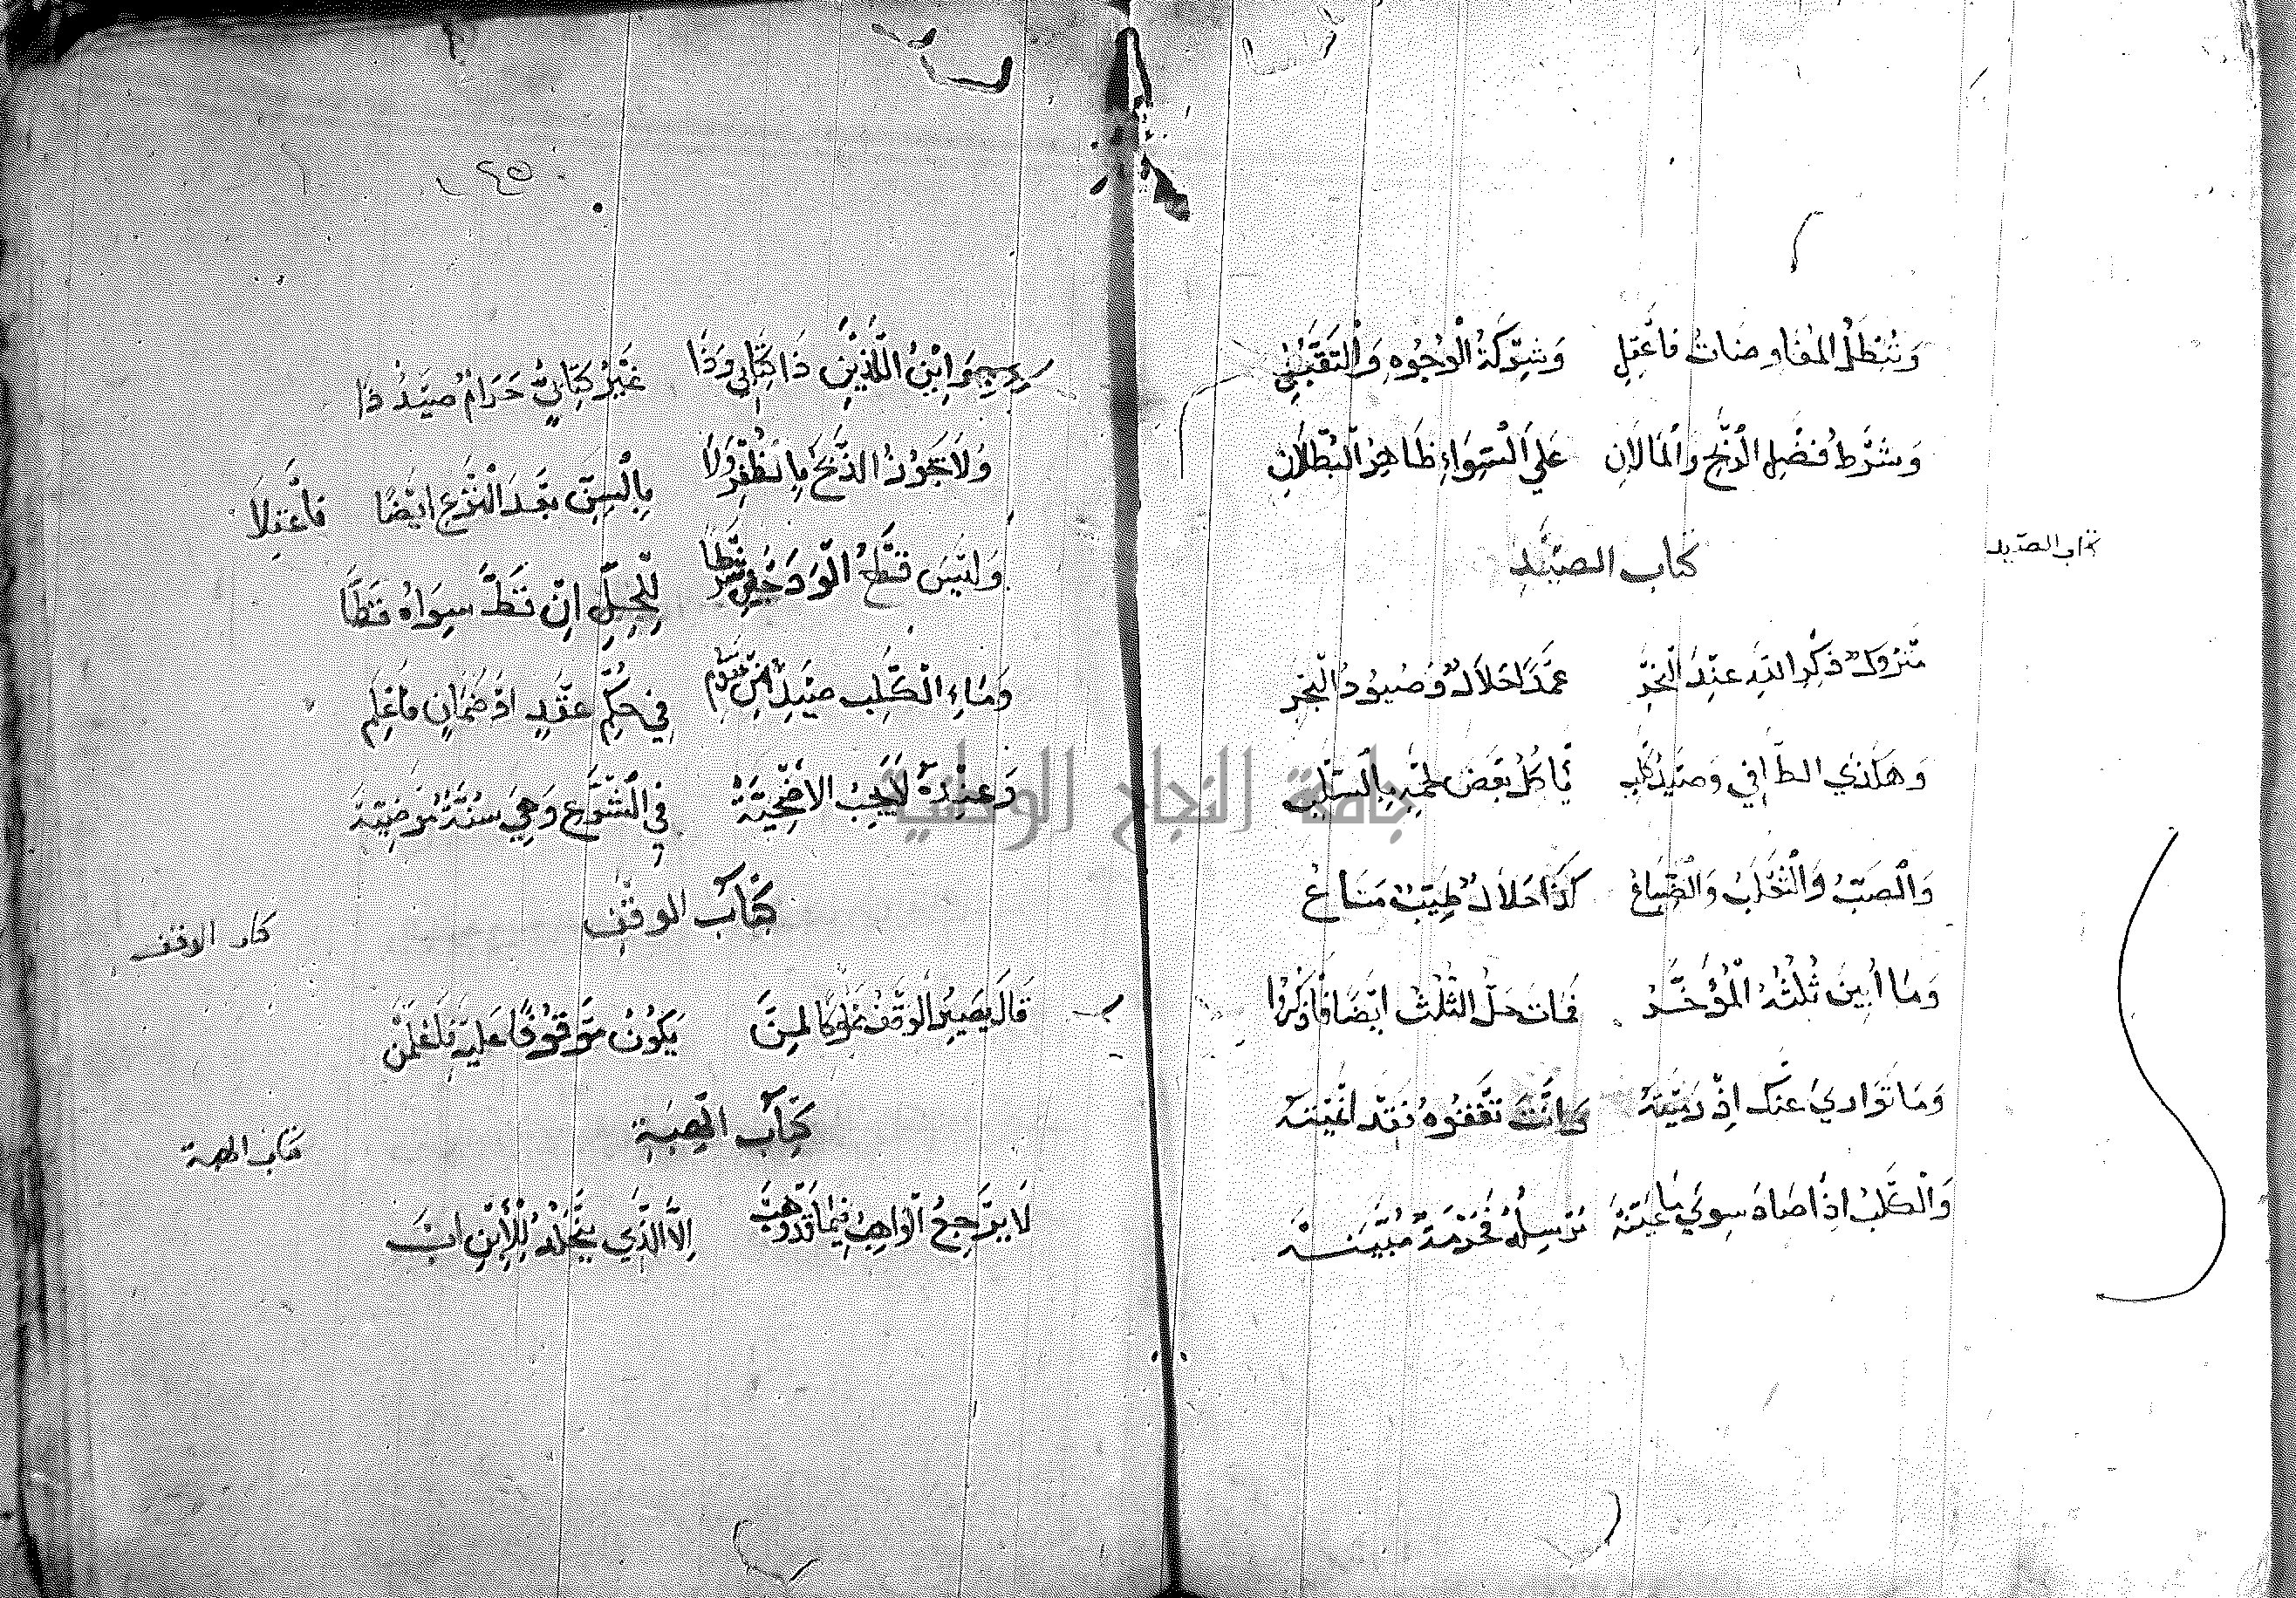 وَتُبْطَلُ المُفَاوضَاتُ فَاعْقِلِ وَشِرْكَةُ الْوُجُوهِ وَالتَّقَبُّلِ
وَشَرْطُ فَضْلِ الرِّبْحِ وَالْمَالَانِ عَلَى السَّوَاءِ ظَاهِرُ الْبُطْلَانِ
كتاب الصَّيْدِ
كتاب الصيد
مَتْرُوكُ ذِكْرِ اللهِ عِنْدَ النَّحْرِ عَمْدًا حَلَالٌ وَصُيُودُ الْبَحْرِ
وَهَكَذَي الطَّافِي وَصَيْدُ كَلْبِ يَأكُلُ بَعْضَ لَحْمِهِ بِالسَّلْبِ
وَالضَّبُّ وَالثَّعْلَبُ وَالضِّبَاعُ كَذَا حَلَالٌ طَيِّبٌ مَتَاعُ
وَمَا أُبِينَ ثُلْثُهُ الْمُؤَخَّرُ فَمَاتَ حَلَّ الثُّلْثُ ايْضًا فَاذْكُرُوا
وَمَا تَوَارَي عَنْكَ اِذْ رَمَيْتَهُ وَانْتَ تَقْفُوهُ فَقَدْ انْمَيْتَهُ
وَالْكَلْبُ اِذَا صَادَ سِوَي مَا عَيَّنَهْ مُرْسِلُهُ فَحُرْمَةٌ مُبَيَّنَهْ
٤٥
وَابْنُ اللَّذَيْنِ ذَا كِتَابِي وَذَا غَيْرُ كِتَابِيٍّ حَرَامٌ صَيْدُ ذَا
وَلَا تَجَوُّزُ الذَّبْحَ بِالظُّفْرِ وَلَا بِالسِّنِّ بَعْدَ النَّزْعِ ايْضًا فَاعْقِلَا
وَلَيْسَ قَطْعُ الْوَدَجَيْنِ شَرْطَا لِلْحِلِّ اِنْ قَطَّ سِوَاهُ قَطَّا
وَمَا الْكَلْبِ صَيْدٍ فِي حُكْمِ عَقْدٍ اوْ ضَمَانٍ فَاعْلَمِ
وَعِنْدَهُ لَا يَجِبُ الاُضْحِيَّةْ فِي الشَّرْعِ وَهْيَ سُنَّةٌ مَرْضِيَّةْ
كِتَابُ الوقْفِ
كتاب الوقف
قَالَ يَصِيرُ الْوَقْفُ مُلْكًا لِمَنْ يَكُونُ مَوْقُوفًا عَلَيْهِ فَاعْلَمَنْ
كِتَابُ الْهِبَةِ
كتاب الهبة
لَا يَرْجِعُ الْوَاهِبُ فِيمَا قَدْ وَهَبْ اِلَّا الَّذِي يَنْحَلُهُ لِلْاِبْنِ ابْ
جامعة النجاح الوطنية